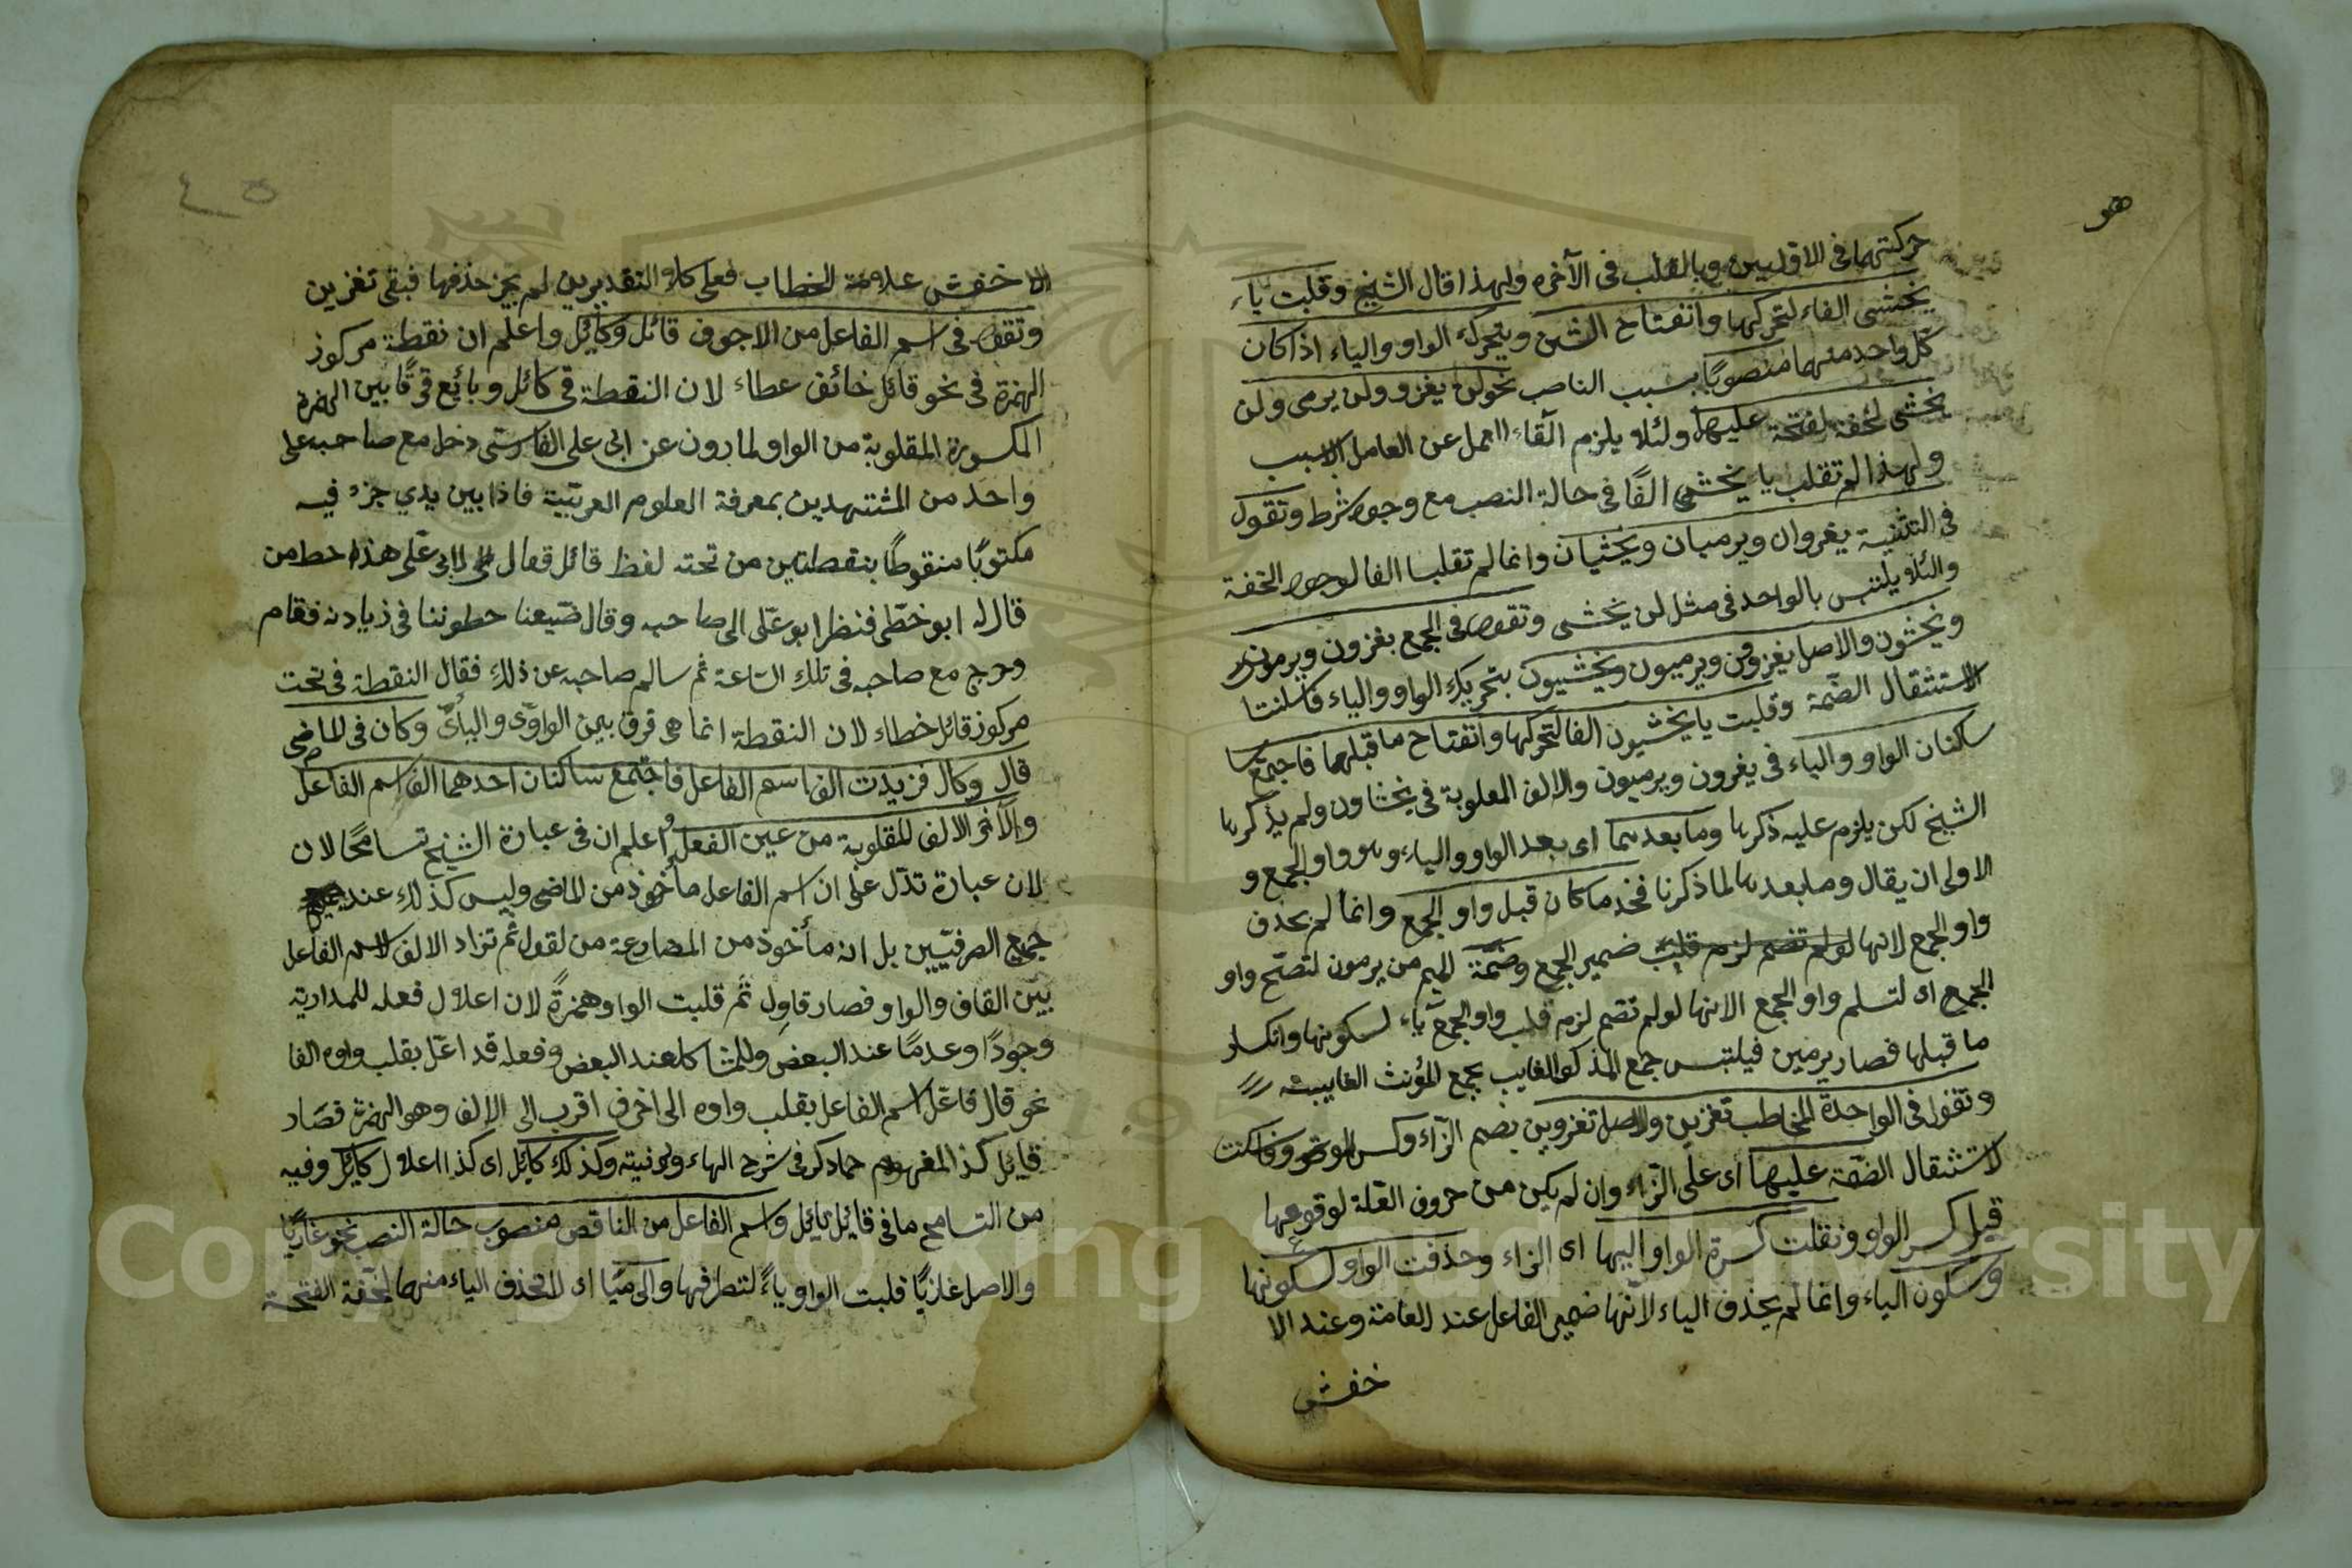 هو
حركتهما في الاوليين وبالقلب في الآخره ولهذا قال الشيخ وقلبت ياء
يخشى الفاء لتحركها وانفتاح الشين ويتحرك الواو والياء اذا كان
كل واحد منهما منصوبًا بسبب الناصب نحو لن يغزو ولن يرمى ولن
يخشى لخفة لفتحة عليها ولئلا يلزم القاء العمل عن العامل الاسبب
ولهذا لم تقلب يا يخشى الفًا في حالة النصب مع وجود شرط وتقول
في التثنية يغزوان ويرميان ويخشيان وانما لم تقلبا الفا لوجود الخفة
والئلا يلتبس بالواحد في مثل لن يخشى وتقول في الجمع يغزون ويرمون
ويخشون والاصل يغزوون ويرميون ويخشيون بتحريك الواو والياء فاسكنتا
لاستثقال الضمة وقلبت يا يخشيون الفا لتحركها وانفتاح ما قبلها فاجتمع
ساكنان الواو والياء في يغزون ويرميون والالف المعلوبة في يخشاون ولم يذكرها
الشيخ لكن يلزم عليه ذكرها وما بعدهما اى بعد الواو والياء وهو واو الجمع و
الاولى ان يقال وما بعدها لما ذكرنا فحذ ما كان قبل واو الجمع وانما لم يحذف
واو الجمع لانها لو لم تضم لزم قلبت ضمير الجمع وضمة الميم من يرمون لتصح واو
الجمع اى لتسلم واو الجمع الانها لو لم تضم لزم قلب واو الجمع ياء لسكونها وانكسار
ما قبلها فصار يرمين فيلتبس جمع المذكر الغايب بجمع المؤنث الغايبة
وتقول في الواحدة المخاطب تغزين والاصل تغزوين بضم الزاء وكسر الواو فاسكنت
لاستثقال الضمة عليها اى على الزاء وان لم يكن من حروف العلة لوقوعها
قبل كسر الواو ونقلت كسرة الواو اليها اى الزاء وحذفت الواو لسكونها
وسكون الياء وانما لم يحذف الياء لانها ضمير الفاعل عند العامة وعند الا
خفش
٤٥
الا خفش علامة الخطاب فعلى كلا التقديرين لم يجز حذفها فبقى تغزين
وتقول في اسم الفاعل من الاجوف قائل وكايل واعلم ان نقطة مركوز
الهمزة في نحو قائل خائف عطاء لان النقطة في كائل وبائع فرقًا بين الهمزة
المكسورة المقلوبة من الواو لما رون عن ابى على الفارسى دخل مع صاحبه على
واحد من المشتهدين بمعرفة العلوم العربية فاذا بين يدي جزء فيه
مكتوبًا منقوطًا بنقطتين من تحته لفظ قائل فقال الى ابى على هذا خط من
قال له ابو خطى فنظر ابو على الى صاحبه وقال ضيعنا خطوننا في زيادته فقام
وخرج مع صاحبه في تلك الساعة ثم سالم صاحبه عن ذلك فقال النقطة في تحت
مركوز قائل خطاء لان النقطة انما هى فرق بين الواوى واليائى وكان في الماضى
قال وكال فزيدت الف اسم الفاعل فاجتمع ساكنان احدهما الف اسم الفاعل
والآخر الالف المقلوبة من عين الفعل واعلم ان في عبارة الشيخ تسامحًا لان
لان عبارة تدل على ان اسم الفاعل مأخوذ من الماضى وليس كذلك عند
جميع الصرفيين بل انه مأخوذ من المضارعة من لقول ثم تزاد الالف لاسم الفاعل
بين القاف والواو فصار قاول ثم قلبت الواو همزةً لان اعلال فعله للمدارية
وجودًا وعدمًا عند البعض وللمشاكلة عند البعض وفعله قد اعل بقلب واوه الفا
نحو قال فاعل اسم الفاعل بقلب واوه الى اخرف اقرب الى الالف وهو الهمزة فصار
قايل كذ المفهوم مما ذكر في شرح الهاء وكذلك كايل اى كذا اعلال كايل وفيه
من التسامح ما في قايل بايل واسم الفاعل من الناقص منصوب حالة النصب نحو غازيًا
والاصل غازيًا قلبت الواو ياءً لتطرفها والى ميًا اى لا تحذف الياء منهما لخفة الفتحة
Copyright © King Saud University